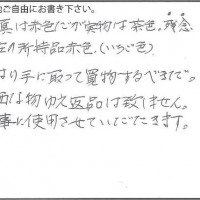 ご自由にお書き下さい。
真は赤色だが実物は茶色。残念
所持品赤色。(いちご色)
はり手に取って買物するべきで。
価な物ゆえ返品は致しません。
事に使用させていただきます。